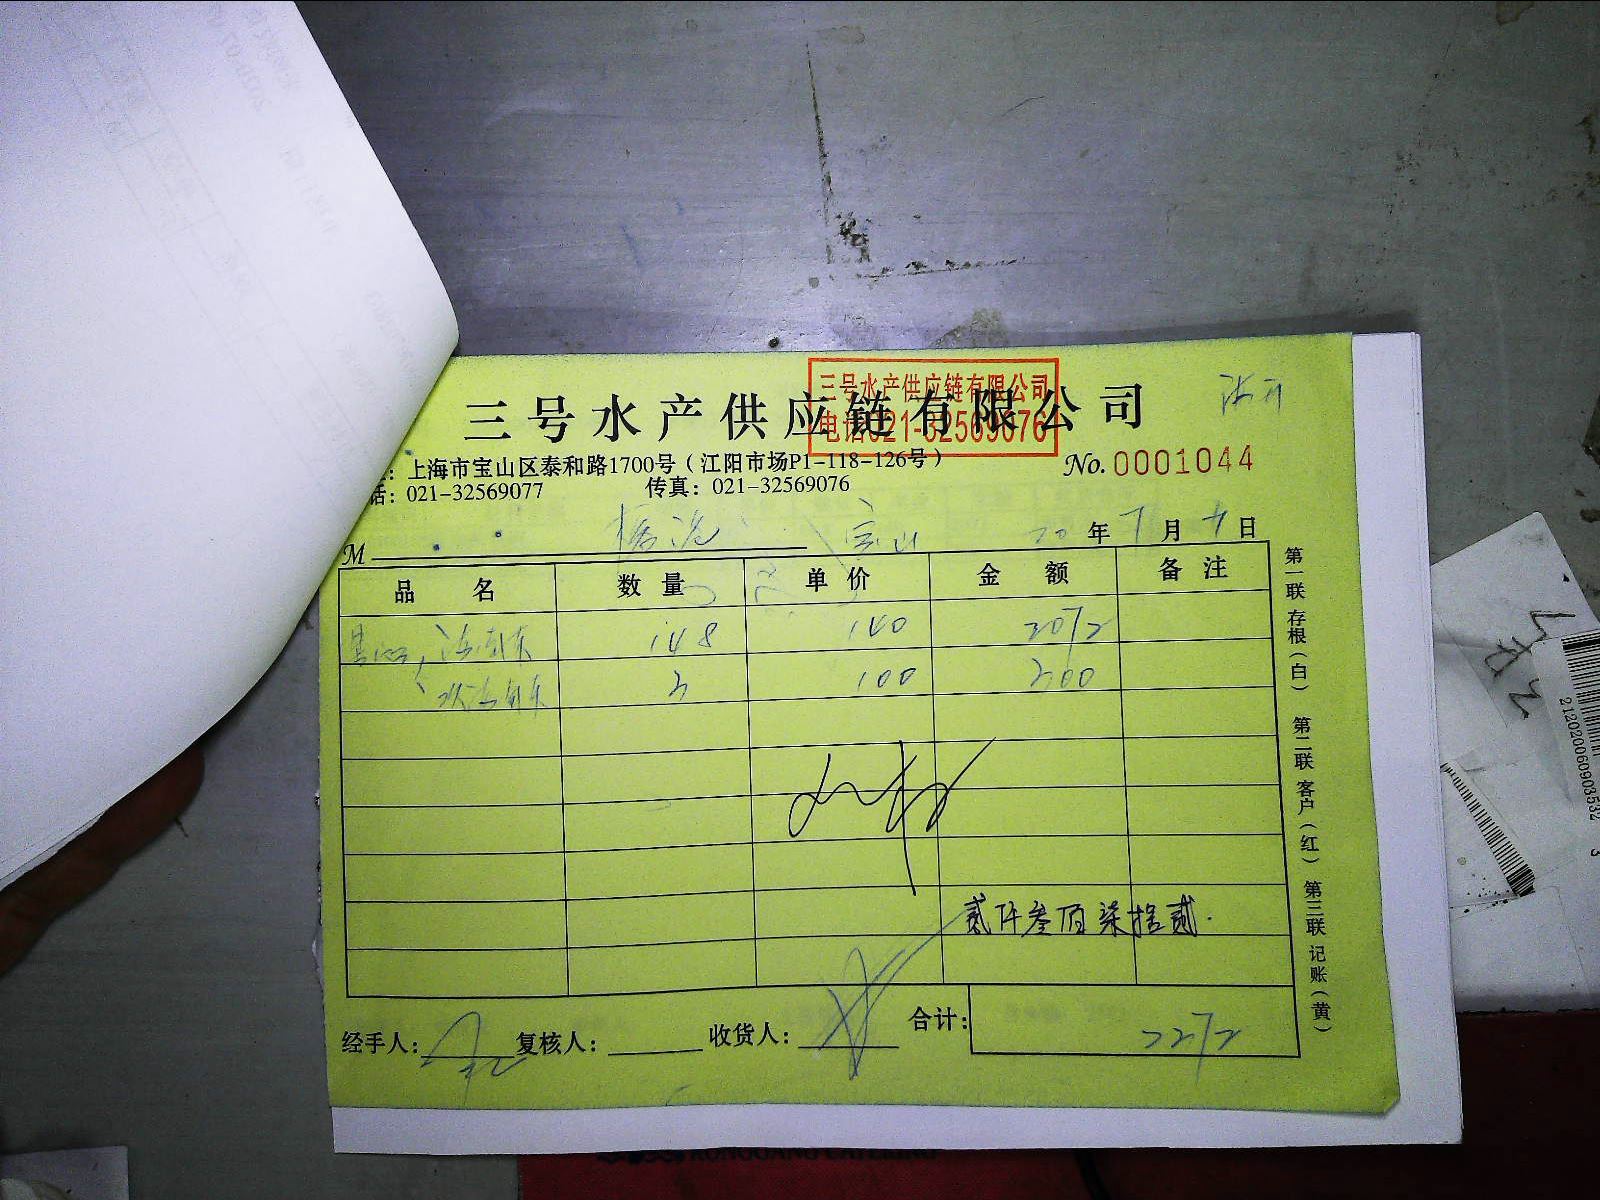 三号水产供应链有限公司
三号水产供应链有限公司
电话021-32569076
: 上海市宝山区泰和路1700号（江阳市场P1-118-126号）
No. 0001044
话: 021-32569077 传真: 021-32569076
宝山 20 年 7 月 日
M
品 名 数 量 单 价 金 额 备 注
148 140 2072
3 100 300
贰仟叁佰柒拾贰.
经手人: 复核人: 收货人: 合计: 2272
第一联 存根（白） 第二联 客户（红） 第三联 记账（黄）
212020060903532 3
RONGGANG CATERING